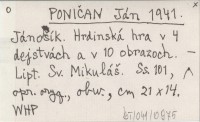 PONIČAN Ján 1941.
Jánošík. Hrdinská hra v 4
dejstvách a v 10 obrazoch.
Lipt. Sv. Mikuláš. Ss. 101,
obw., cm 21 x 14.
WHP